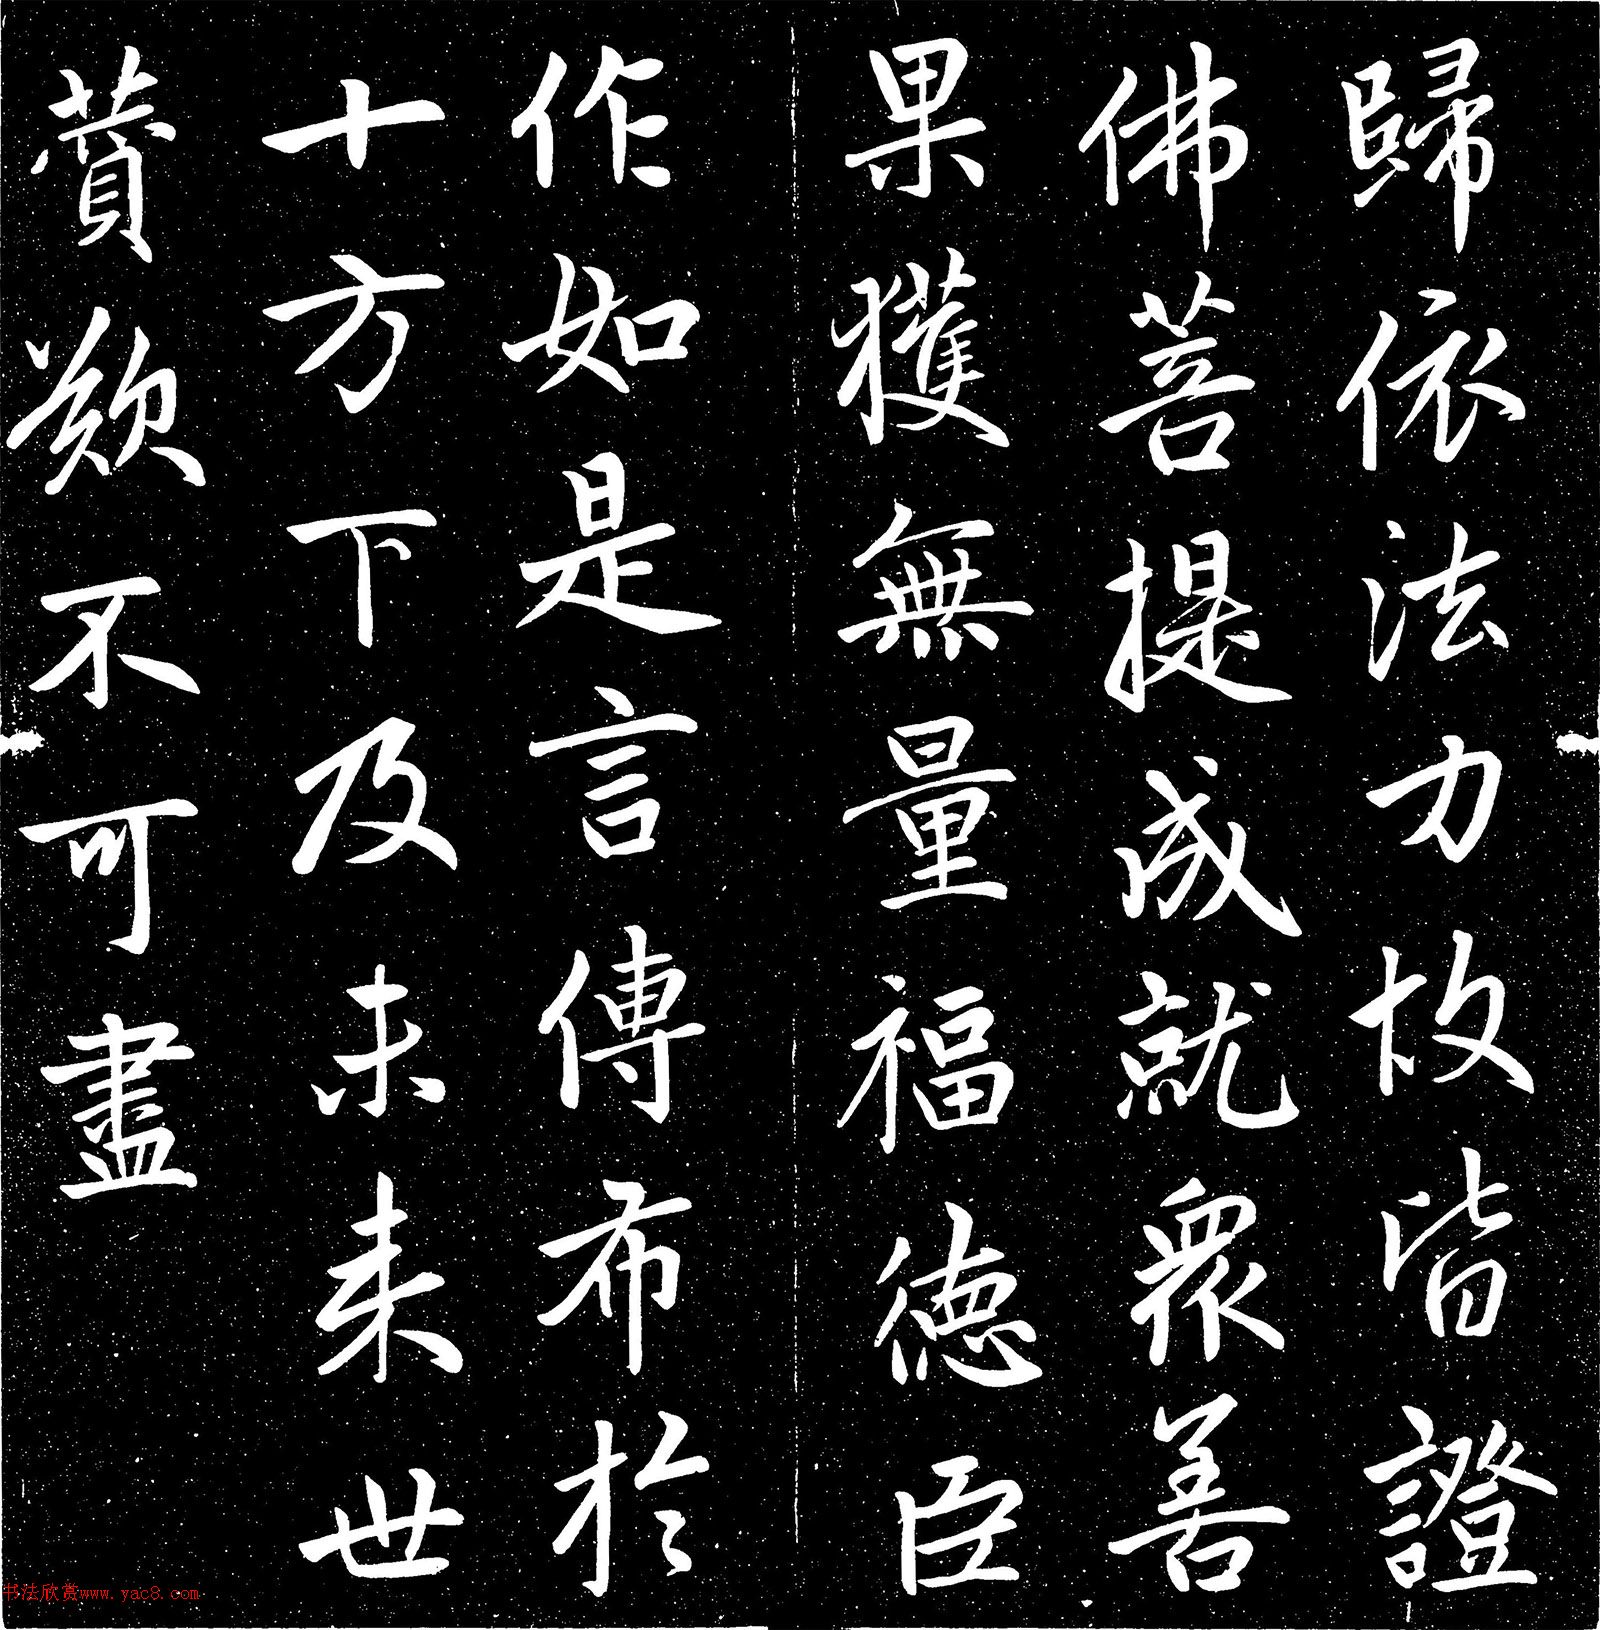 歸依法力故皆證
佛菩提成就眾善
果獲無量福德臣
作如是言傳布於
十方下及未来世
讚歎不可盡
书法欣赏www.yac8.com